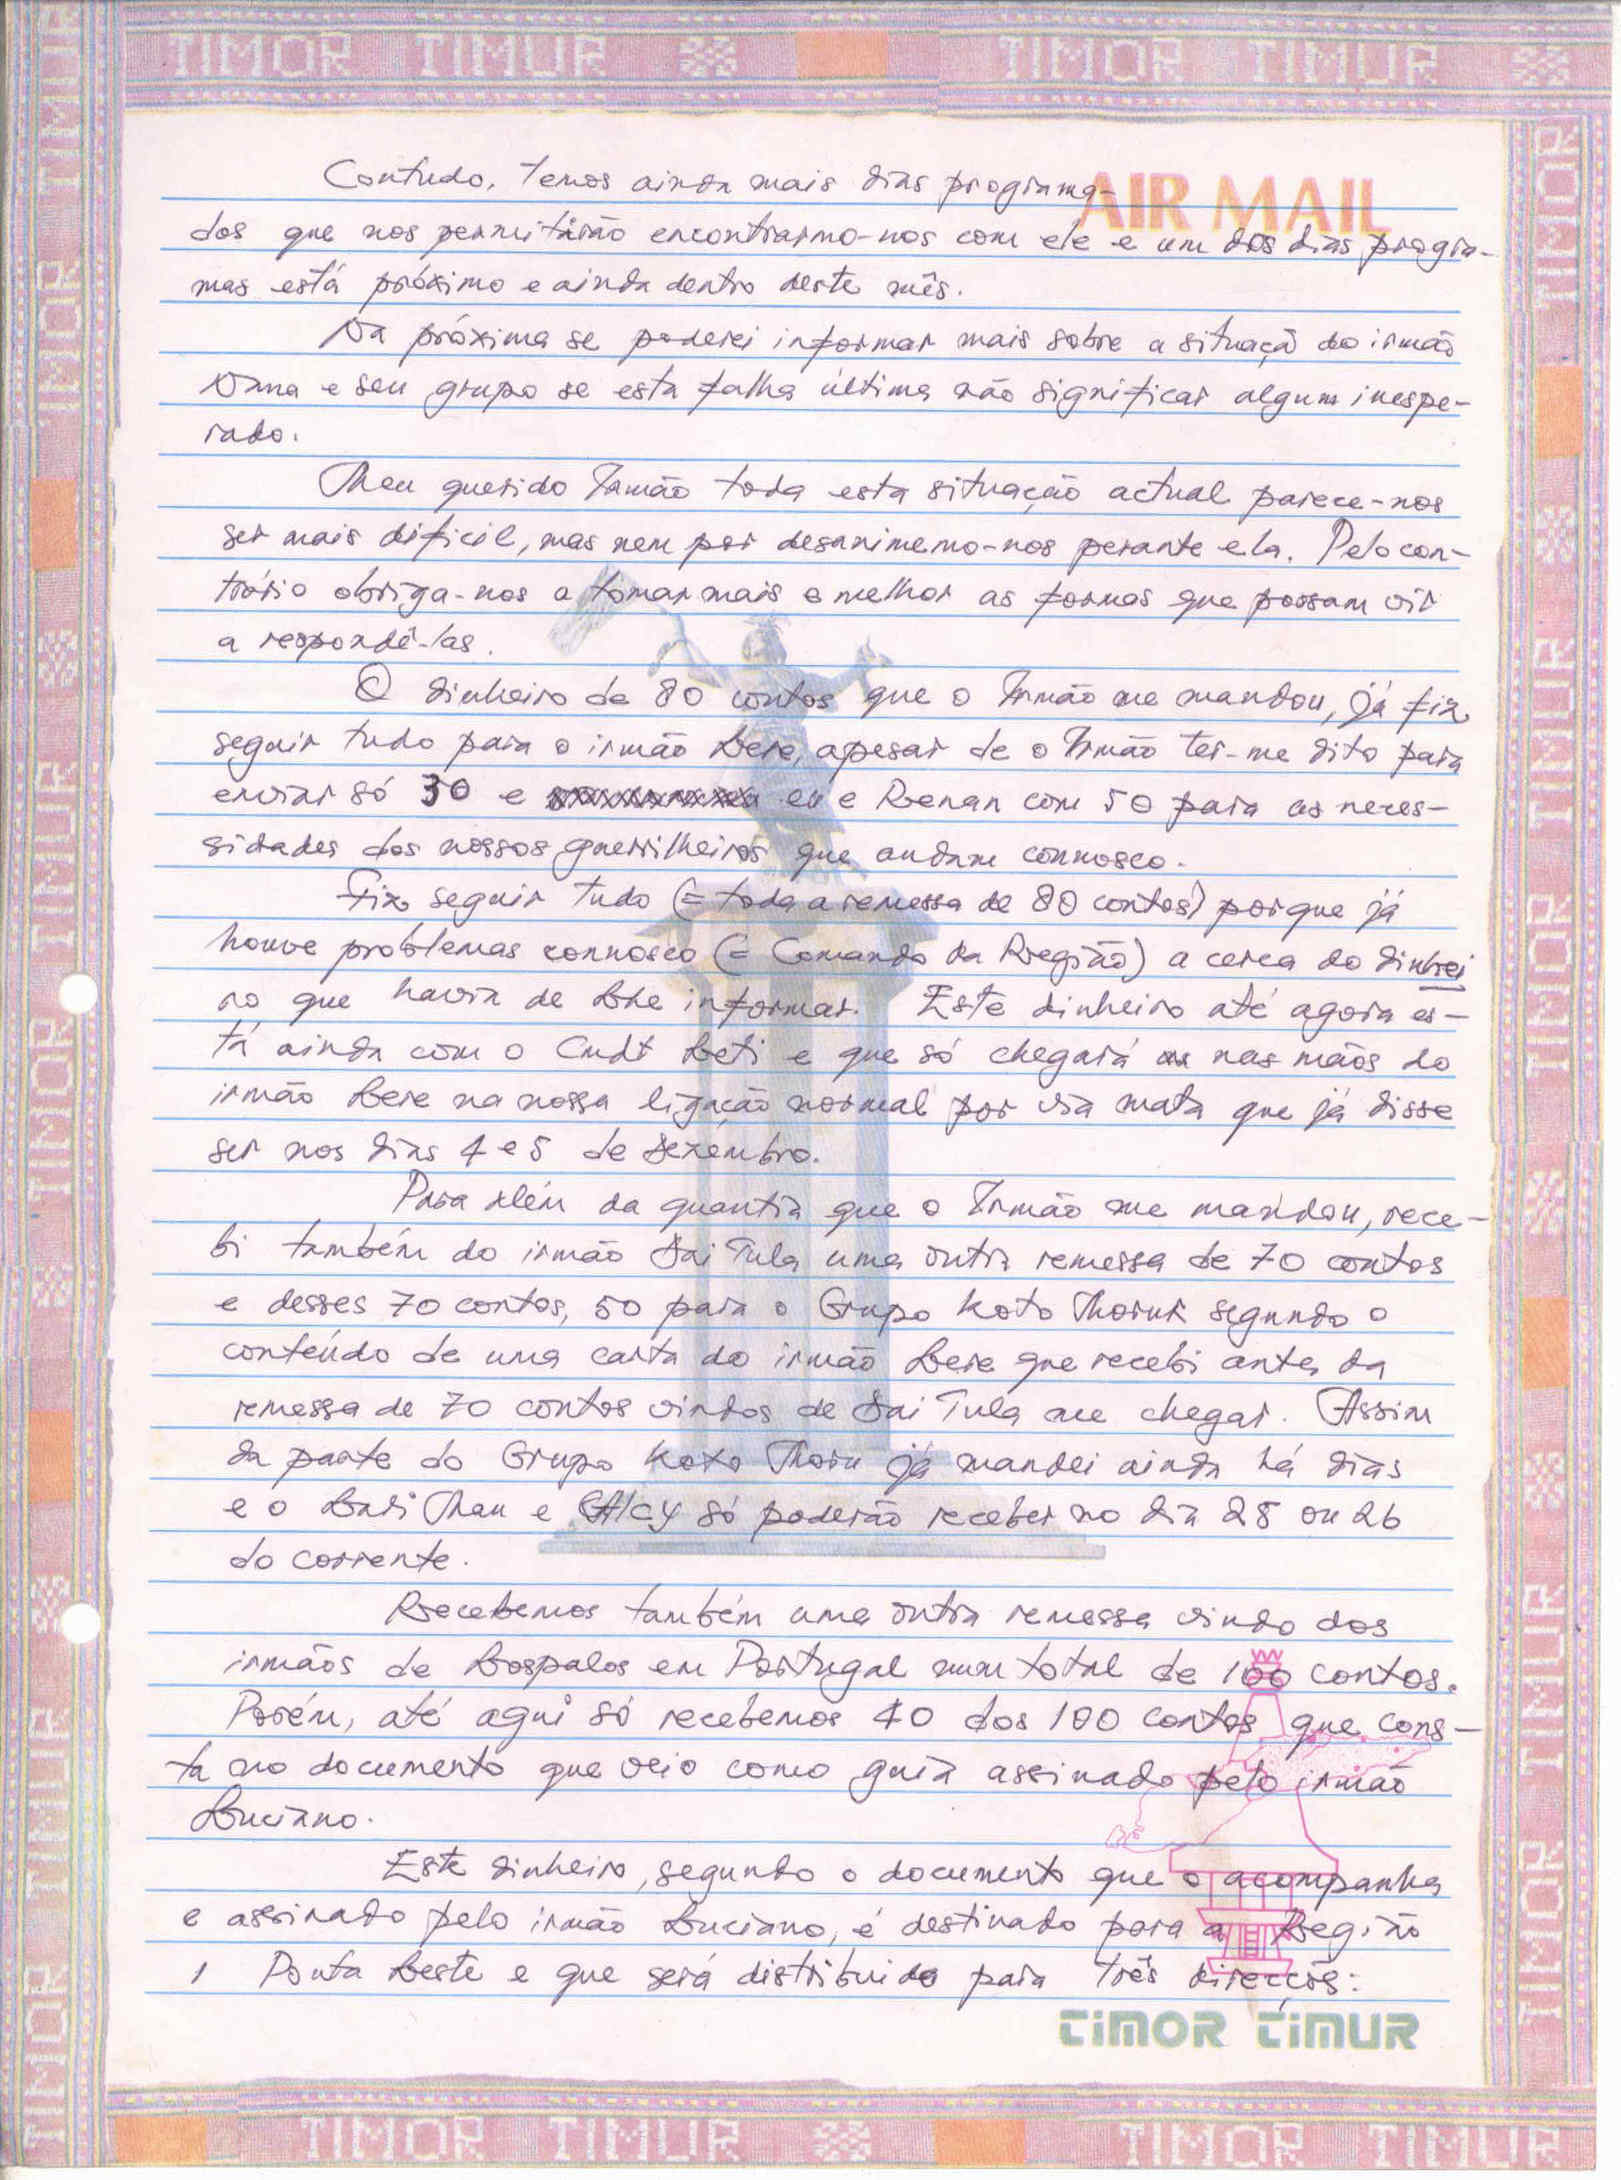 TIMOR TIMUR TIMOR TIMUR
AIR MAIL
Contudo, temos ainda mais dias programa-
dos que nos permitirão encontrarmo-nos com ele e um dos dias progra-
mas está próximo e ainda dentro deste mês.
Na próxima se poderei informar mais sobre a situaçã do irmão
e seu grupo se esta falha última não significar algum inespe-
rado.
Meu querido Irmão toda esta situação actual parece-nos
ser mais difícil, mas nem por desanimemo-nos perante ela. Pelo con-
trário obriga-nos a tomar mais e melhor as formas que possam vir
a respondê-las.
O dinheiro de 80 contos que o Irmão me mandou, já fiz
seguir tudo para o irmão Lere, apesar de o Irmão ter-me dito para
enviar só 30 e eu e Renan com 50 para as neces-
sidades dos nossos guerrilheiros que andam connosco.
Fiz seguir tudo (= toda a remessa de 80 contos) porque já
houve problemas connosco (= Comando da Região) a cerca do dinhei
ro que havia de Lhe informar. Este dinheiro até agora es-
tá ainda com o Cmdt Leti e que só chegará nas mãos do
irmão Lere na nossa ligação normal por via mata que já disse
ser nos dias 4 e 5 de Dezembro.
Para além da quantia que o Irmão me mandou, rece-
bi também do irmão Sai Tula uma outra remessa de 70 contos
e desses 70 contos, 50 para o Grupo Koto Moruk segundo o
conteúdo de uma carta do irmão Lere que recebi antes da
remessa de 70 contos vindos de Sai Tula me chegar. Assim
da parte do Grupo Koto Moru já mandei ainda há dias
e o Mau e Alcy só poderão receber no dia 25 ou 26
do corrente.
Recebemos também uma outra remessa vindo dos
irmãos de Lospalos em Portugal num total de 100 contos.
Porém, até aqui só recebemos 40 dos 100 contos que cons-
ta no documento que veio como guia assinado pelo irmão
Luciano.
Este dinheiro, segundo o documento que o acompanha
e assinado pelo irmão Luciano, é destinado para a Região
1 Ponta Leste e que será distribuido para três direcçõs:
TIMOR TIMUR
TIMOR TIMUR TIMOR TIMUR